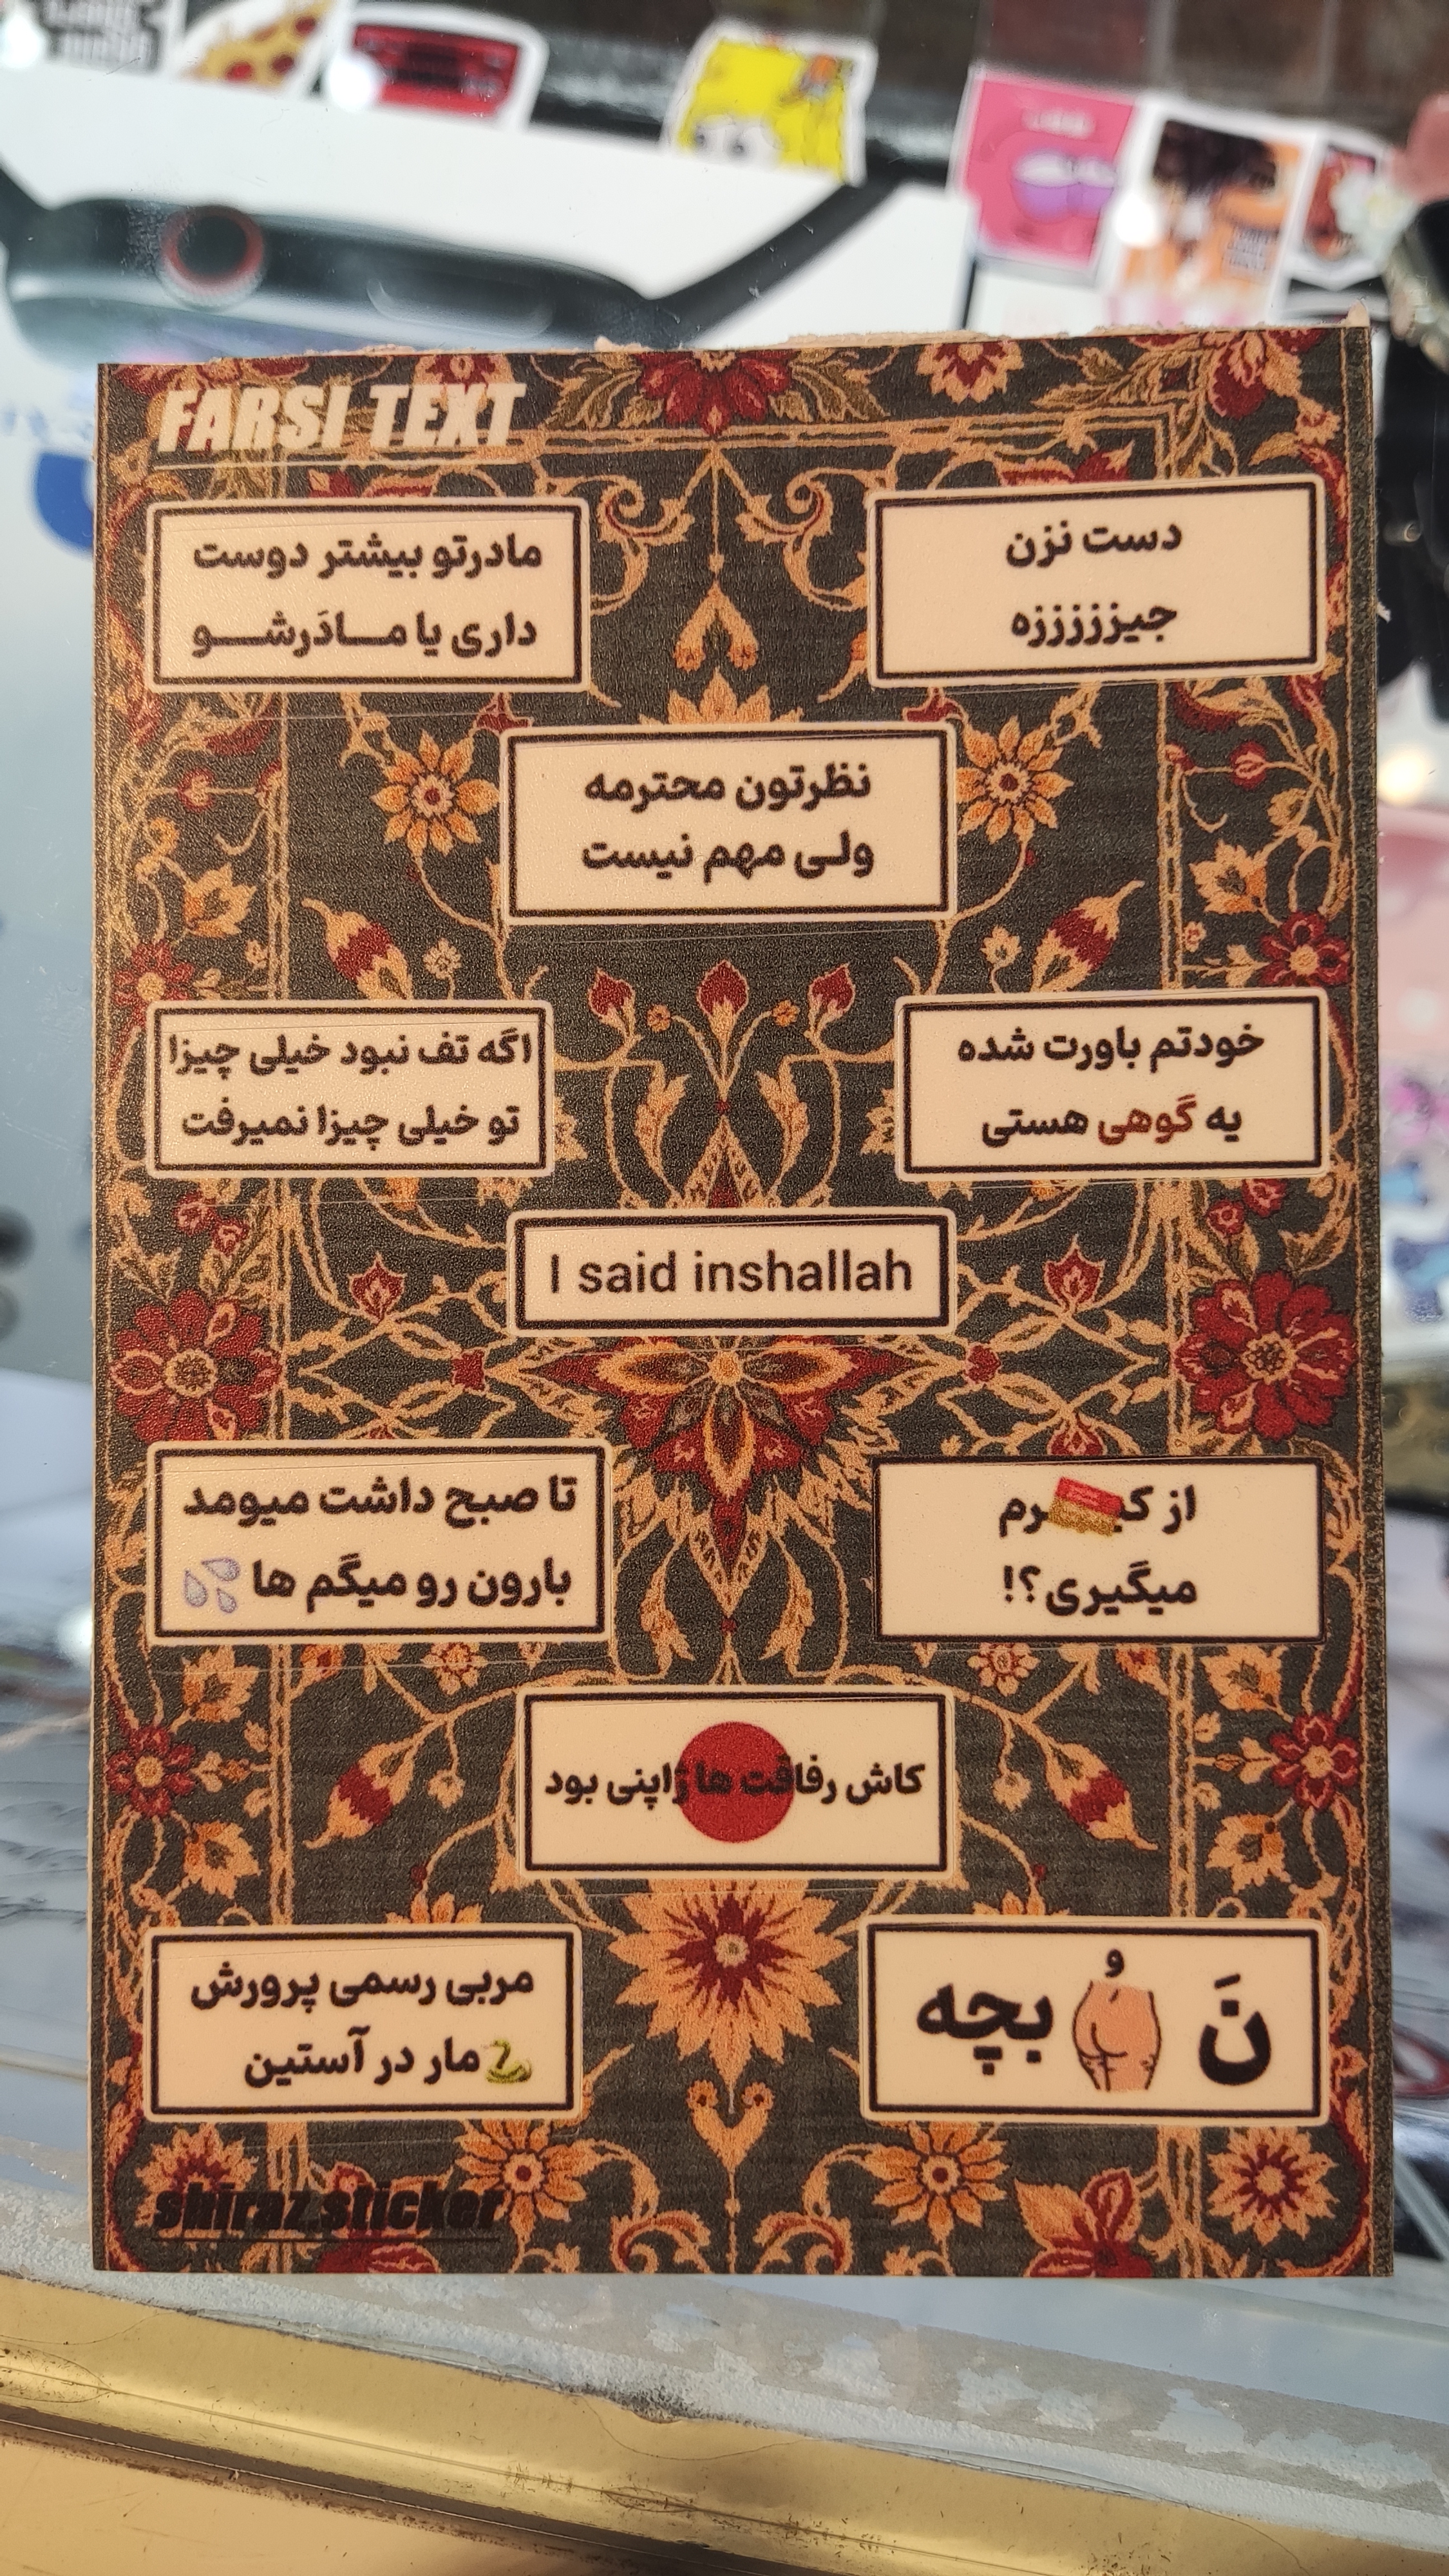 FARSI TEXT
دست نزن
جیززززززه
مادرتو بیشتر دوست
داری یا مــادَرشــو
نظرتون محترمه
ولی مهم نیست
خودتم باورت شده
یه گوهی هستی
اگه تف نبود خیلی چیزا
تو خیلی چیزا نمیرفت
I said inshallah
از کیرم
میگیری؟!
تا صبح داشت میومد
بارون رو میگم ها
کاش رفاقت ها ژاپنی بود
نَ و بچه
مربی رسمی پرورش
مار در آستین
shiraz.sticker